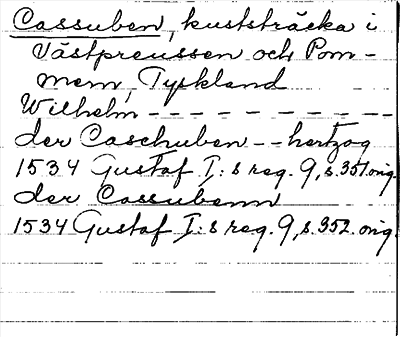 Cassuben, kuststräcka i
Västpreussen och Pom-
mern, Tyskland
Wilhelm - - - - - - - - -
der Caschuben -- hertzog
1534 Gustaf I:s reg. 9, s. 351. orig.
der Cassubenn
1534 Gustaf I:s reg. 9, s. 352. orig.